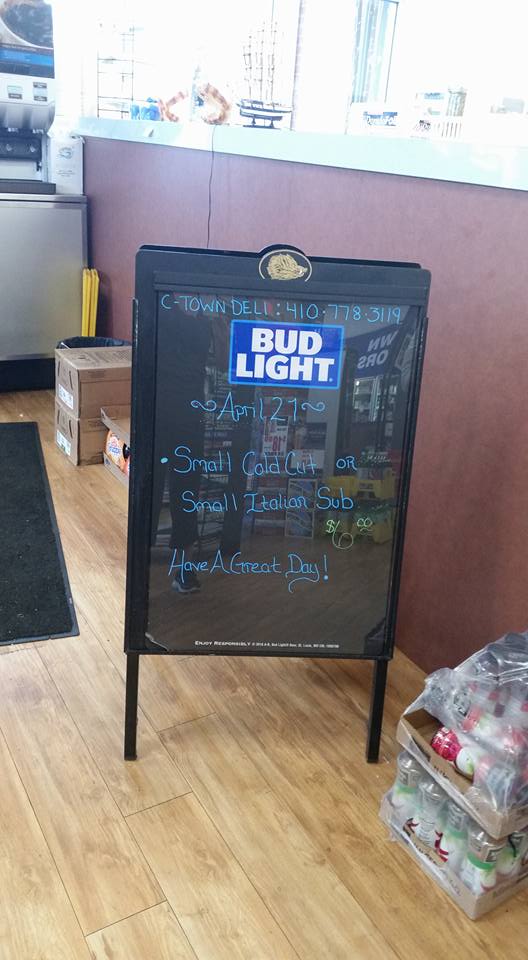 C-TOWN DELI : 410-778-3119
BUD
LIGHT
~April 27~
• Small Cold Cut or
Small Italian Sub
$6.00
Have A Great Day!
ENJOY RESPONSIBLY